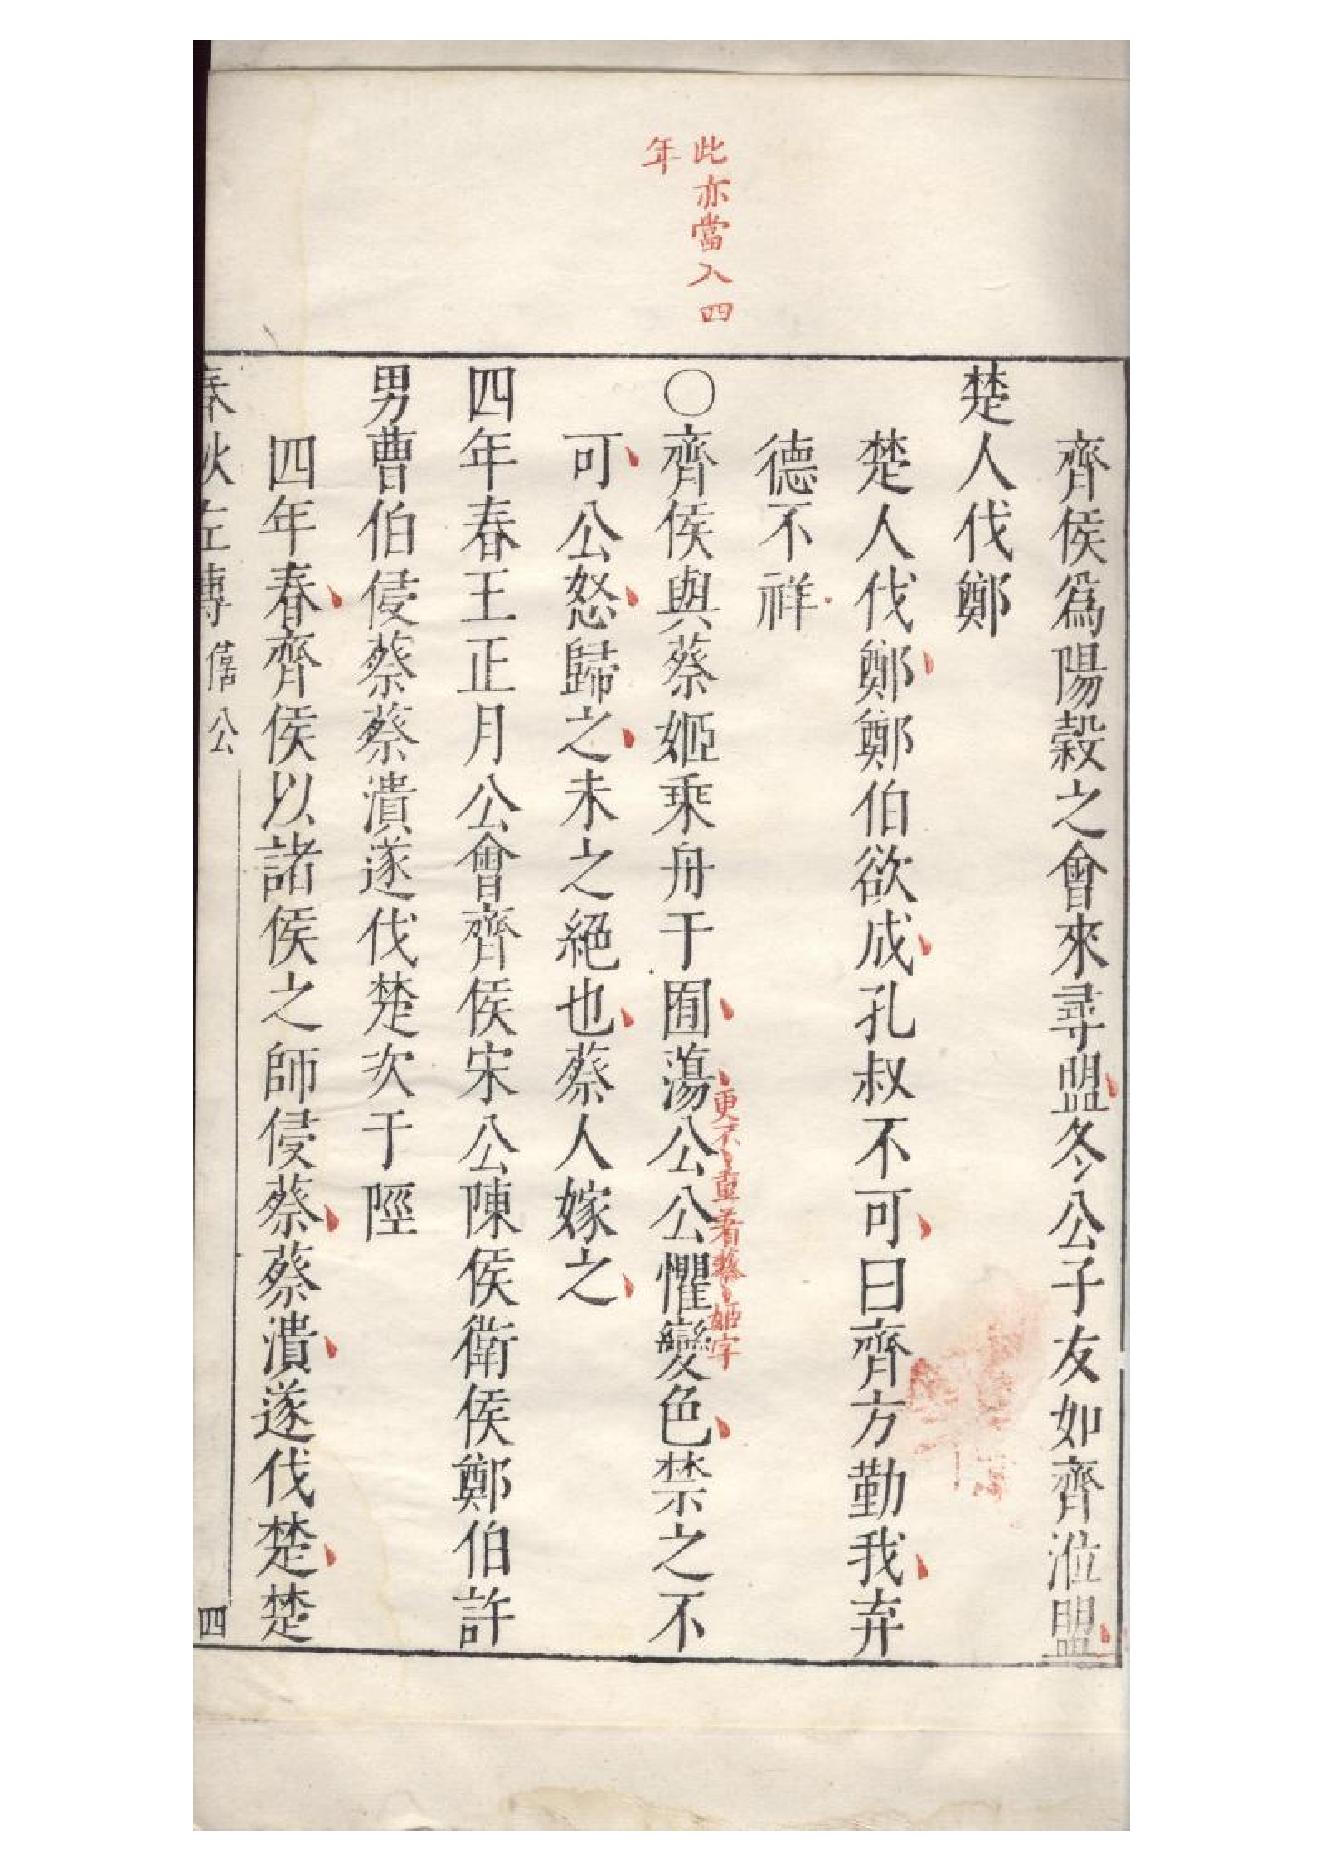 此亦當入四
年
齊侯爲陽穀之會來尋盟冬公子友如齊涖盟
楚人伐鄭
楚人伐鄭鄭伯欲成孔叔不可曰齊方勤我弃
德不祥
〇齊侯與蔡姬乘舟于囿蕩公公懼變色禁之不
更不重着蔡姬字
可公怒歸之未之絕也蔡人嫁之
四年春王正月公會齊侯宋公陳侯衛侯鄭伯許
男曹伯侵蔡蔡潰遂伐楚次于陘
四年春齊侯以諸侯之師侵蔡蔡潰遂伐楚楚
春秋左傳 僖公 四